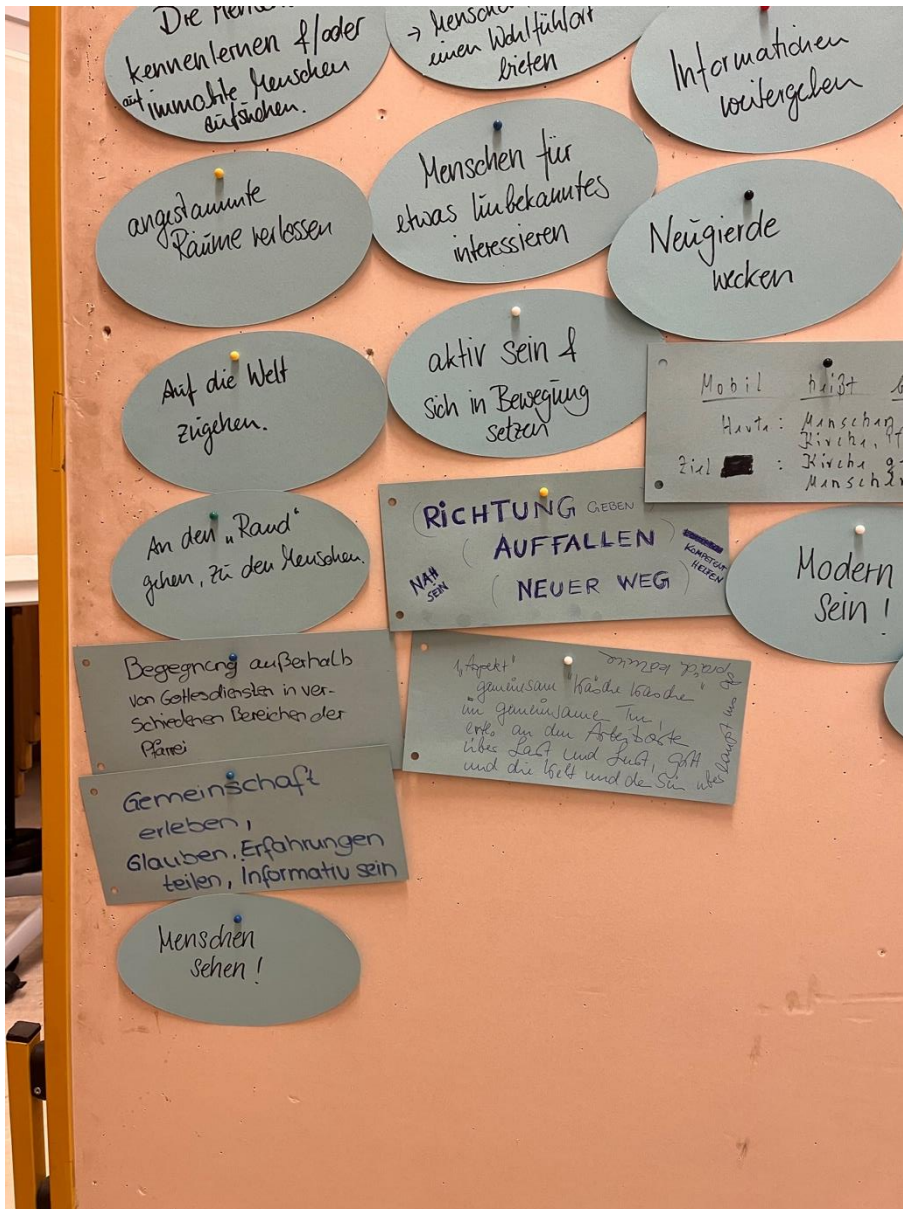 Die Mensch
kennenlernen &/oder
auf immobile Menschen
aufsuchen.
→ Menschen
einen Wohlfühlort
bieten
Informationen
weitergeben
angestammte
Räume verlassen
Menschen für
etwas Unbekanntes
interessieren
Neugierde
wecken
Auf die Welt
zugehen.
aktiv sein &
sich in Bewegung
setzen
Mobil heißt
Heute: Menschen
Kirche,
Ziel : Kirche
Menschen
An den „Rand"
gehen, zu den Menschen.
(RICHTUNG GEBEN
(AUFFALLEN)
(NEUER WEG)
NAH
SEIN
KOMPETENT
HELFEN
Modern
sein!
Begegnung außerhalb
von Gottesdiensten in ver-
schiedenen Bereichen der
Pfarrei
"Aspekt"
"gemeinsam Wäsche Wasche"
im gemeinsame Tun,
an den Arbeitsorte
über Last und Lust, Gott
und die Welt und de Sin überhaupt ins
Gespräch komme
Gemeinschaft
erleben,
Glauben, Erfahrungen
teilen, Informativ sein
Menschen
sehen!